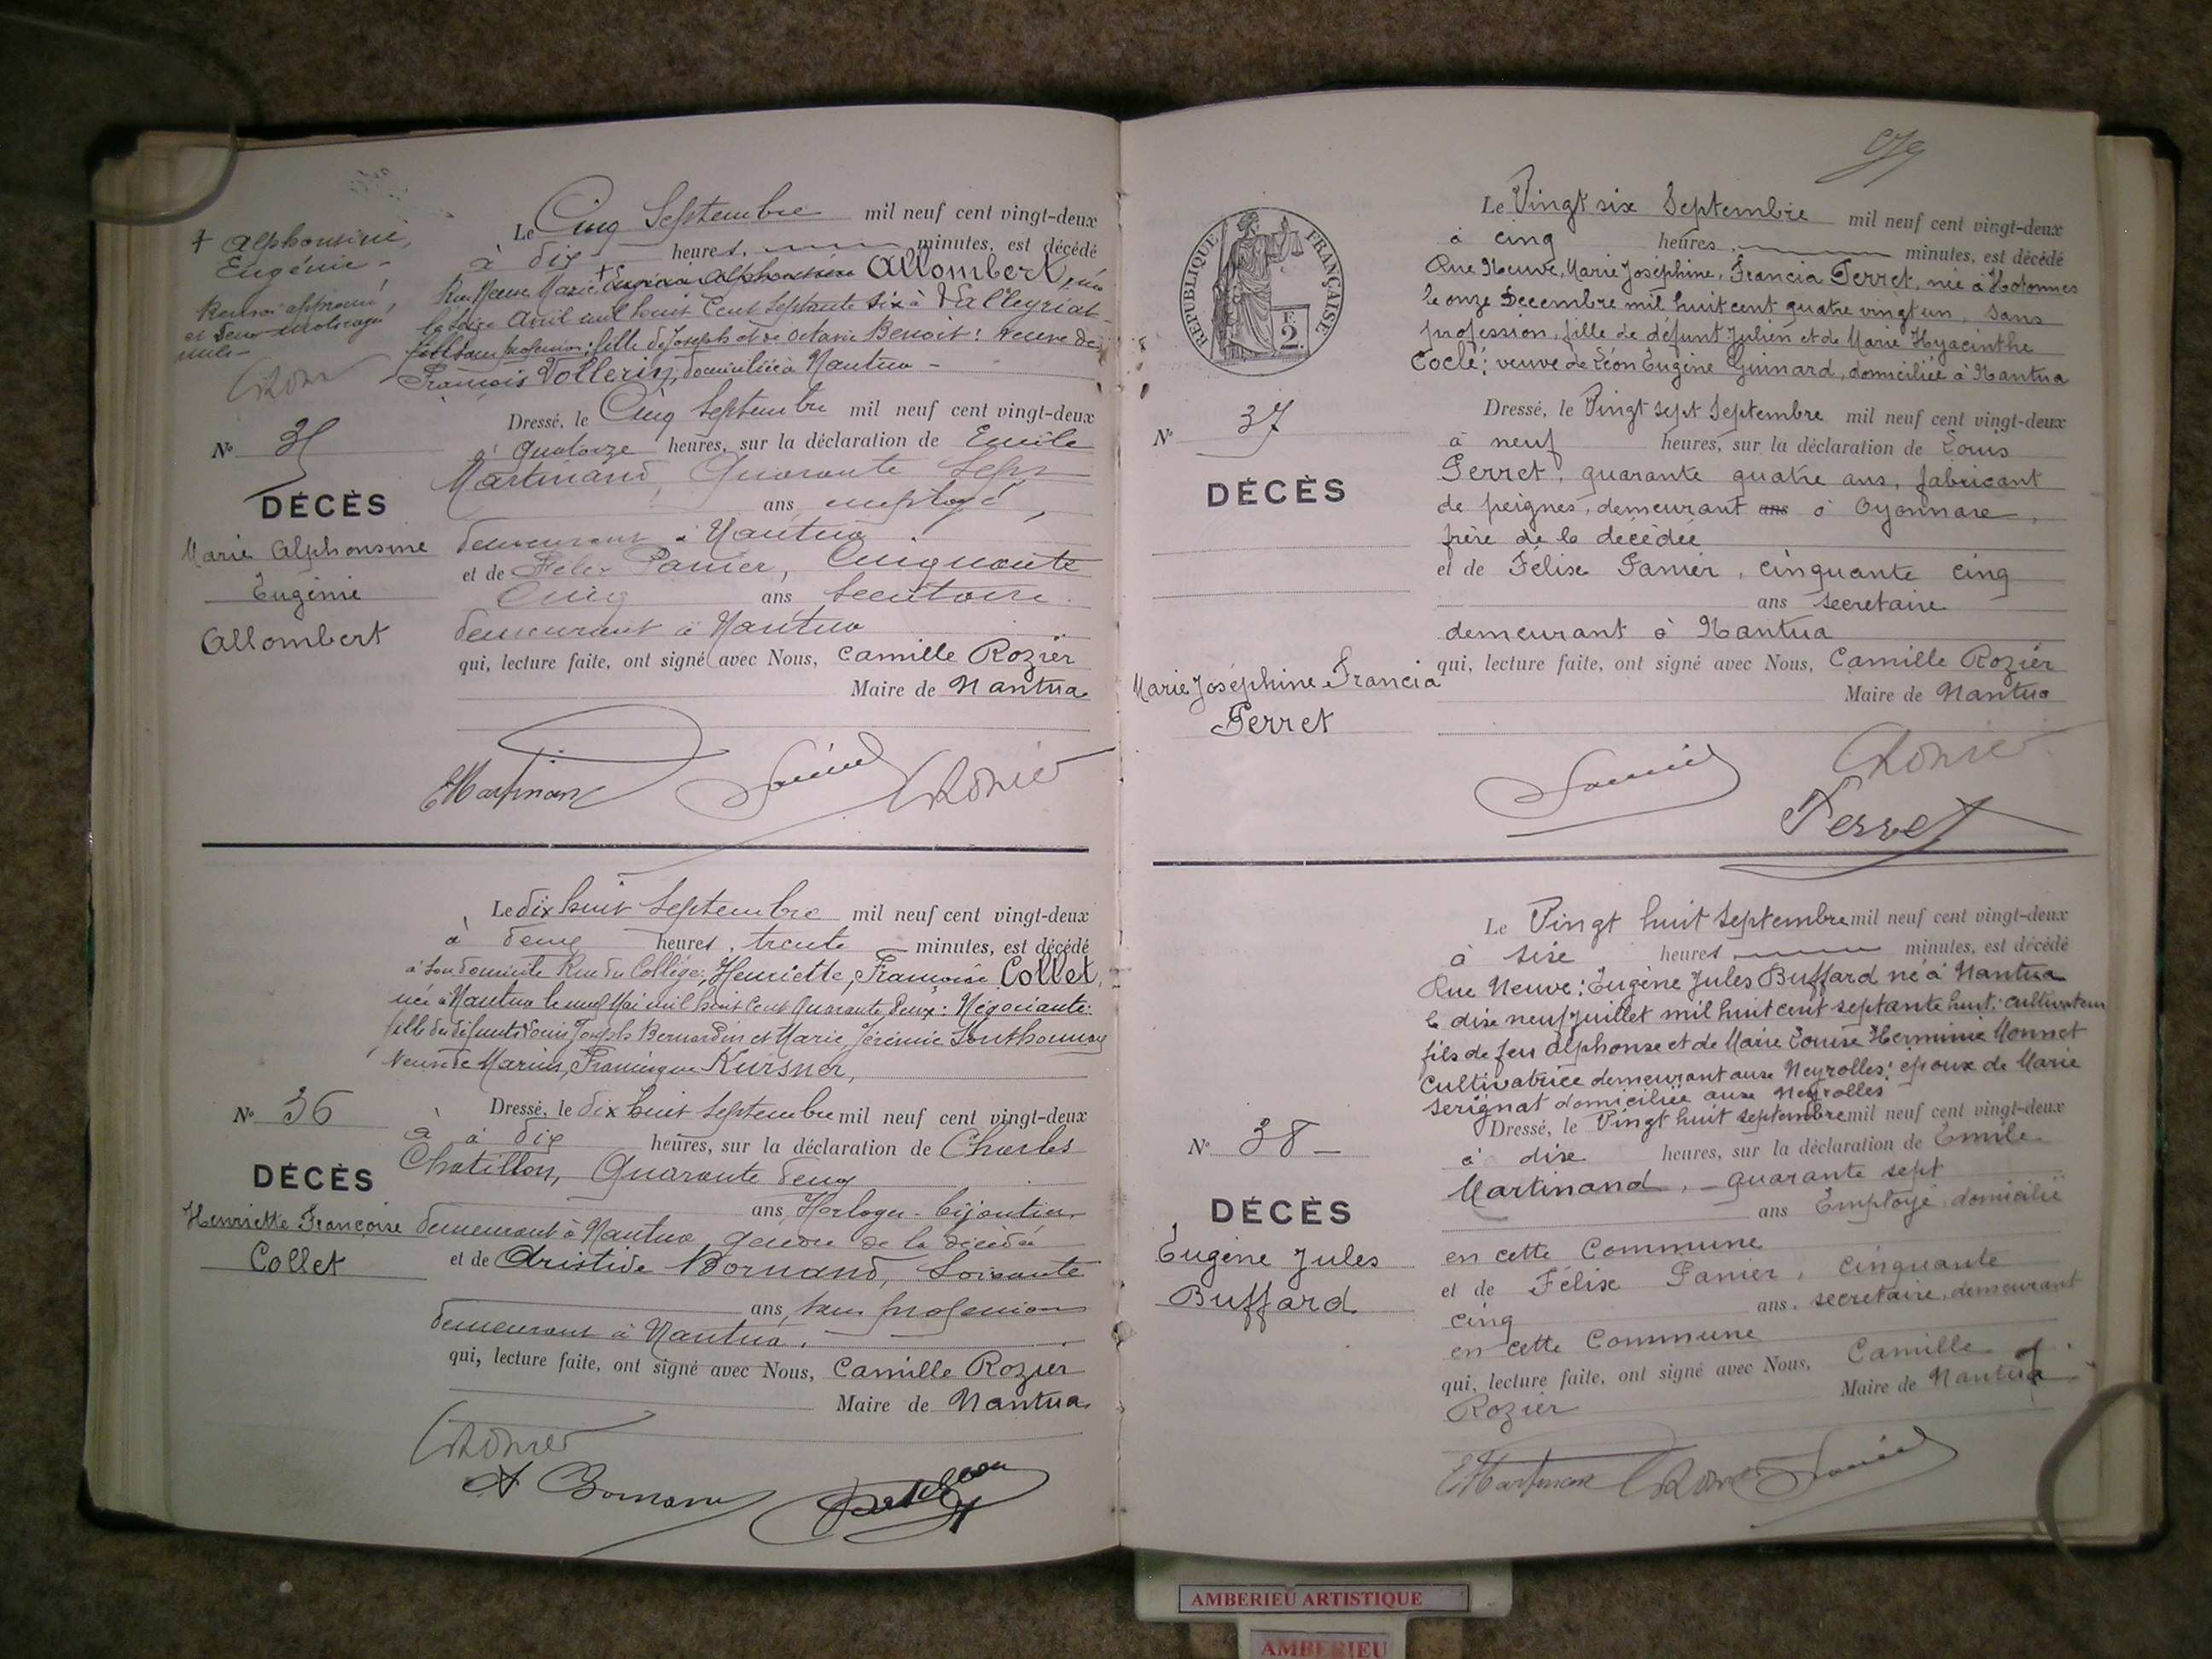 + Alphonsine,
Eugénie -
Renvoi approuvé,
et deux mots rayés
nuls -
CRozier
Le Cinq Septembre mil neuf cent vingt-deux
à dix heures, minutes, est décédé
Rue Neuve Marie + Eugénie Alphonsine Allombert, née
le seize Avril mil huit Cent Septante six à Valleyriat
sans profession: fille de Joseph et de Octavie Benoit: Veuve de
François Vollerin, domiciliée à Nantua -
N° 35
DÉCÈS
Marie Alphonsine
Eugénie
Allombert
Dressé, le Cinq Septembre mil neuf cent vingt-deux
à Quatorze heures, sur la déclaration de Emile
Martinand, Quarante Sept
ans employé,
demeurant à Nantua
et de Félix Panier, Cinquante
Cinq ans Secrétaire
demeurant à Nantua
qui, lecture faite, ont signé avec Nous, Camille Rozier
Maire de Nantua
EMartinand Panier CRozier
Le dix huit Septembre mil neuf cent vingt-deux
à deux heures, trente minutes, est décédé
à son domicile Rue du Collège; Henriette, Françoise Collet,
née à Nantua le neuf Mai mil huit Cent Quarante Deux: Négociante:
fille des défunts Louis Joseph Bernardin et Marie, Jérémie
Veuve de Marius, Francisque Kursner,
N° 36
DÉCÈS
Henriette Françoise
Collet
Dressé, le dix huit Septembre mil neuf cent vingt-deux
à à dix heures, sur la déclaration de Charles
Chatillon, Quarante deux
ans, Horloger-bijoutier
demeurant à Nantua, gendre de la décédée
et de Aristide Bornand, Soixante
ans, sans profession
demeurant à Nantua.
qui, lecture faite, ont signé avec Nous, Camille Rozier
Maire de Nantua
CRozier
A Bornand
RÉPUBLIQUE FRANÇAISE
F.
2.
Le Vingt six Septembre mil neuf cent vingt-deux
à cinq heures, minutes, est décédé
Rue Neuve, Marie Joséphine, Francia Perret, née à Hotonnes
le onze Décembre mil huit cent quatre vingt un, Sans
profession, fille de défunt Julien et de Marie Hyacinthe
Coclé; veuve de Léon Eugène Guinard, domiciliée à Nantua
N° 37
DÉCÈS
Marie Joséphine Francia
Perret
Dressé, le Vingt sept Septembre mil neuf cent vingt-deux
à neuf heures, sur la déclaration de Louis
Perret, quarante quatre ans, fabricant
de peignes, demeurant ans à Oyonnax,
frère de la décédée
et de Félix Panier, cinquante cinq
ans secrétaire
demeurant à Nantua
qui, lecture faite, ont signé avec Nous, Camille Rozier
Maire de Nantua
Panier CRozier
Perret
Le Vingt huit Septembre mil neuf cent vingt-deux
à six heures, minutes, est décédé
Rue Neuve: Eugène Jules Buffard né à Nantua
le dix neuf Juillet mil huit cent septante huit: cultivateur
fils de feu Alphonse et de Marie Louise Herminie Monnet
cultivatrice demeurant aux Neyrolles: époux de Marie
Serignat domiciliée aux Neyrolles
N° 38 -
DÉCÈS
Eugène Jules
Buffard
Dressé, le Vingt huit Septembre mil neuf cent vingt-deux
à dix heures, sur la déclaration de Emile
Martinand, - quarante sept
ans Employé, domicilié
en cette Commune
et de Félix Panier, cinquante
cinq ans, secrétaire, demeurant
en cette Commune
qui, lecture faite, ont signé avec Nous, Camille
Rozier Maire de Nantua
EMartinand CRozier Panier
AMBERIEU ARTISTIQUE
AMBERIEU